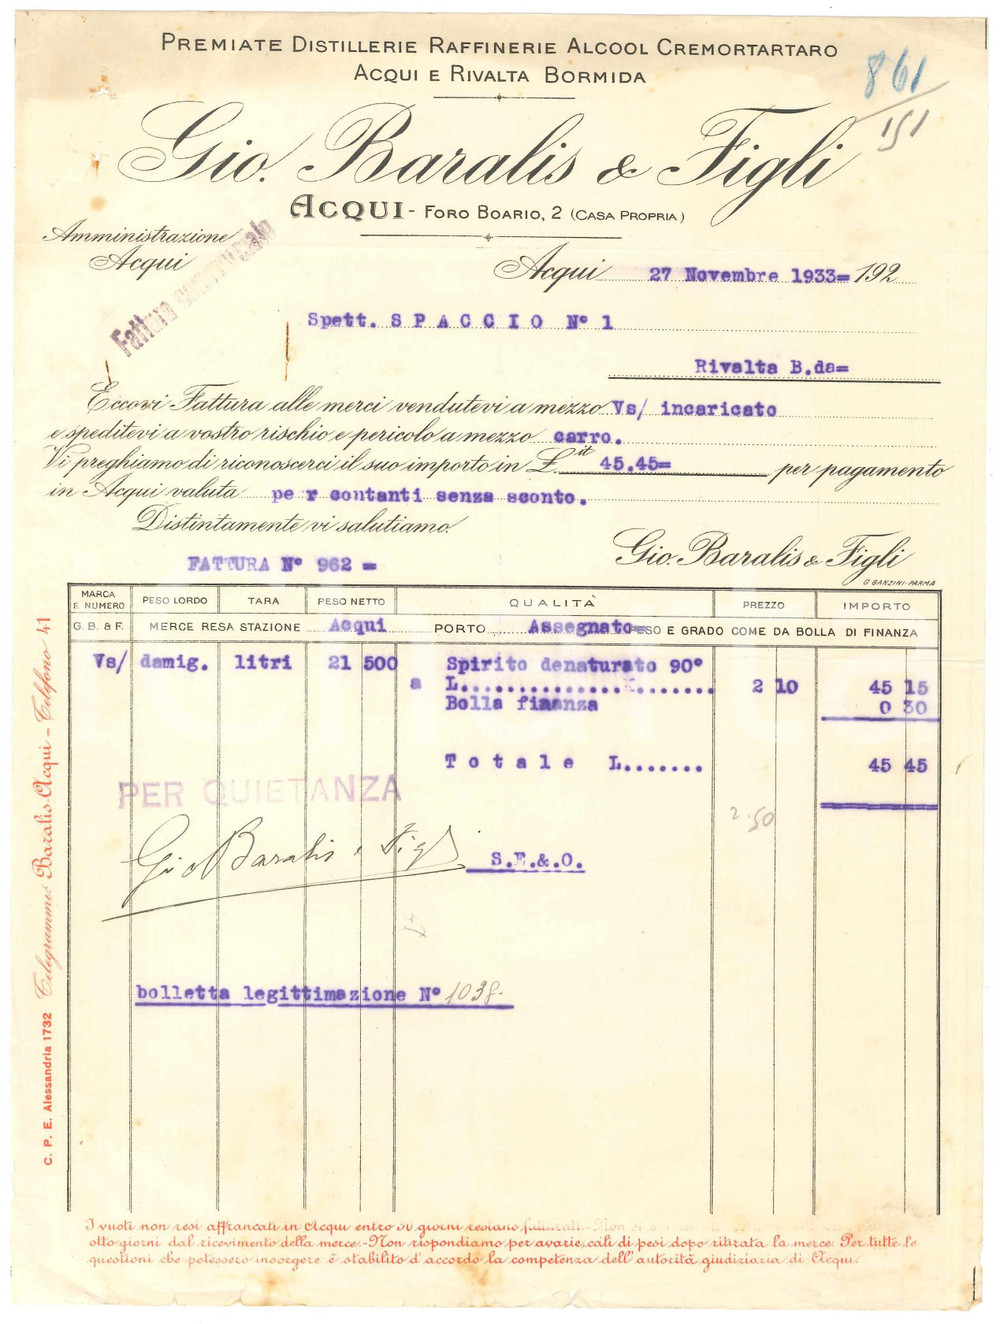 PREMIATE DISTILLERIE RAFFINERIE ALCOOL CREMORTARTARO
ACQUI E RIVALTA BORMIDA
861
151
Gio. Baralis & Figli
ACQUI - FORO BOARIO, 2 (CASA PROPRIA)
Amministrazione
Acqui
Fattura
Acqui 27 Novembre 1933= 192
Spett. SPACCIO N° 1
Rivalta B.da=
Eccovi Fattura alle merci vendutevi a mezzo Vs/ incaricato
e speditevi a vostro rischio e pericolo a mezzo carro.
Vi preghiamo di riconoscerci il suo importo in £.it 45.45= per pagamento
in Acqui valuta pe r contanti senza sconto.
Distintamente vi salutiamo.
Gio. Baralis & Figli
FATTURA N° 962 =
G. GANZINI-PARMA
MARCA E NUMERO PESO LORDO TARA PESO NETTO QUALITÀ PREZZO IMPORTO
G. B. & F. MERCE RESA STAZIONE Acqui PORTO Assegnato= PESO E GRADO COME DA BOLLA DI FINANZA
Vs/ damig. litri 21 500 Spirito denaturato 90°
a L. 2 10 45 15
Bolla finanza 0 30
Totale L....... 45 45
PER QUIETANZA
2.50
Gio Baralis & Figli
S.E.&.O.
bolletta legittimazione N° 1038.
C. P. E. Alessandria 1732 Telegrammi: Baralis-Acqui - Telefono 41
I vuoti non resi affrancati in Acqui entro 30 giorni restano fatturati. - Non si
otto giorni dal ricevimento della merce. - Non rispondiamo per avarie, cali di peso dopo ritirata la merce. Per tutte le
questioni che potessero insorgere è stabilito d'accordo la competenza dell'autorità giudiziaria di Acqui.